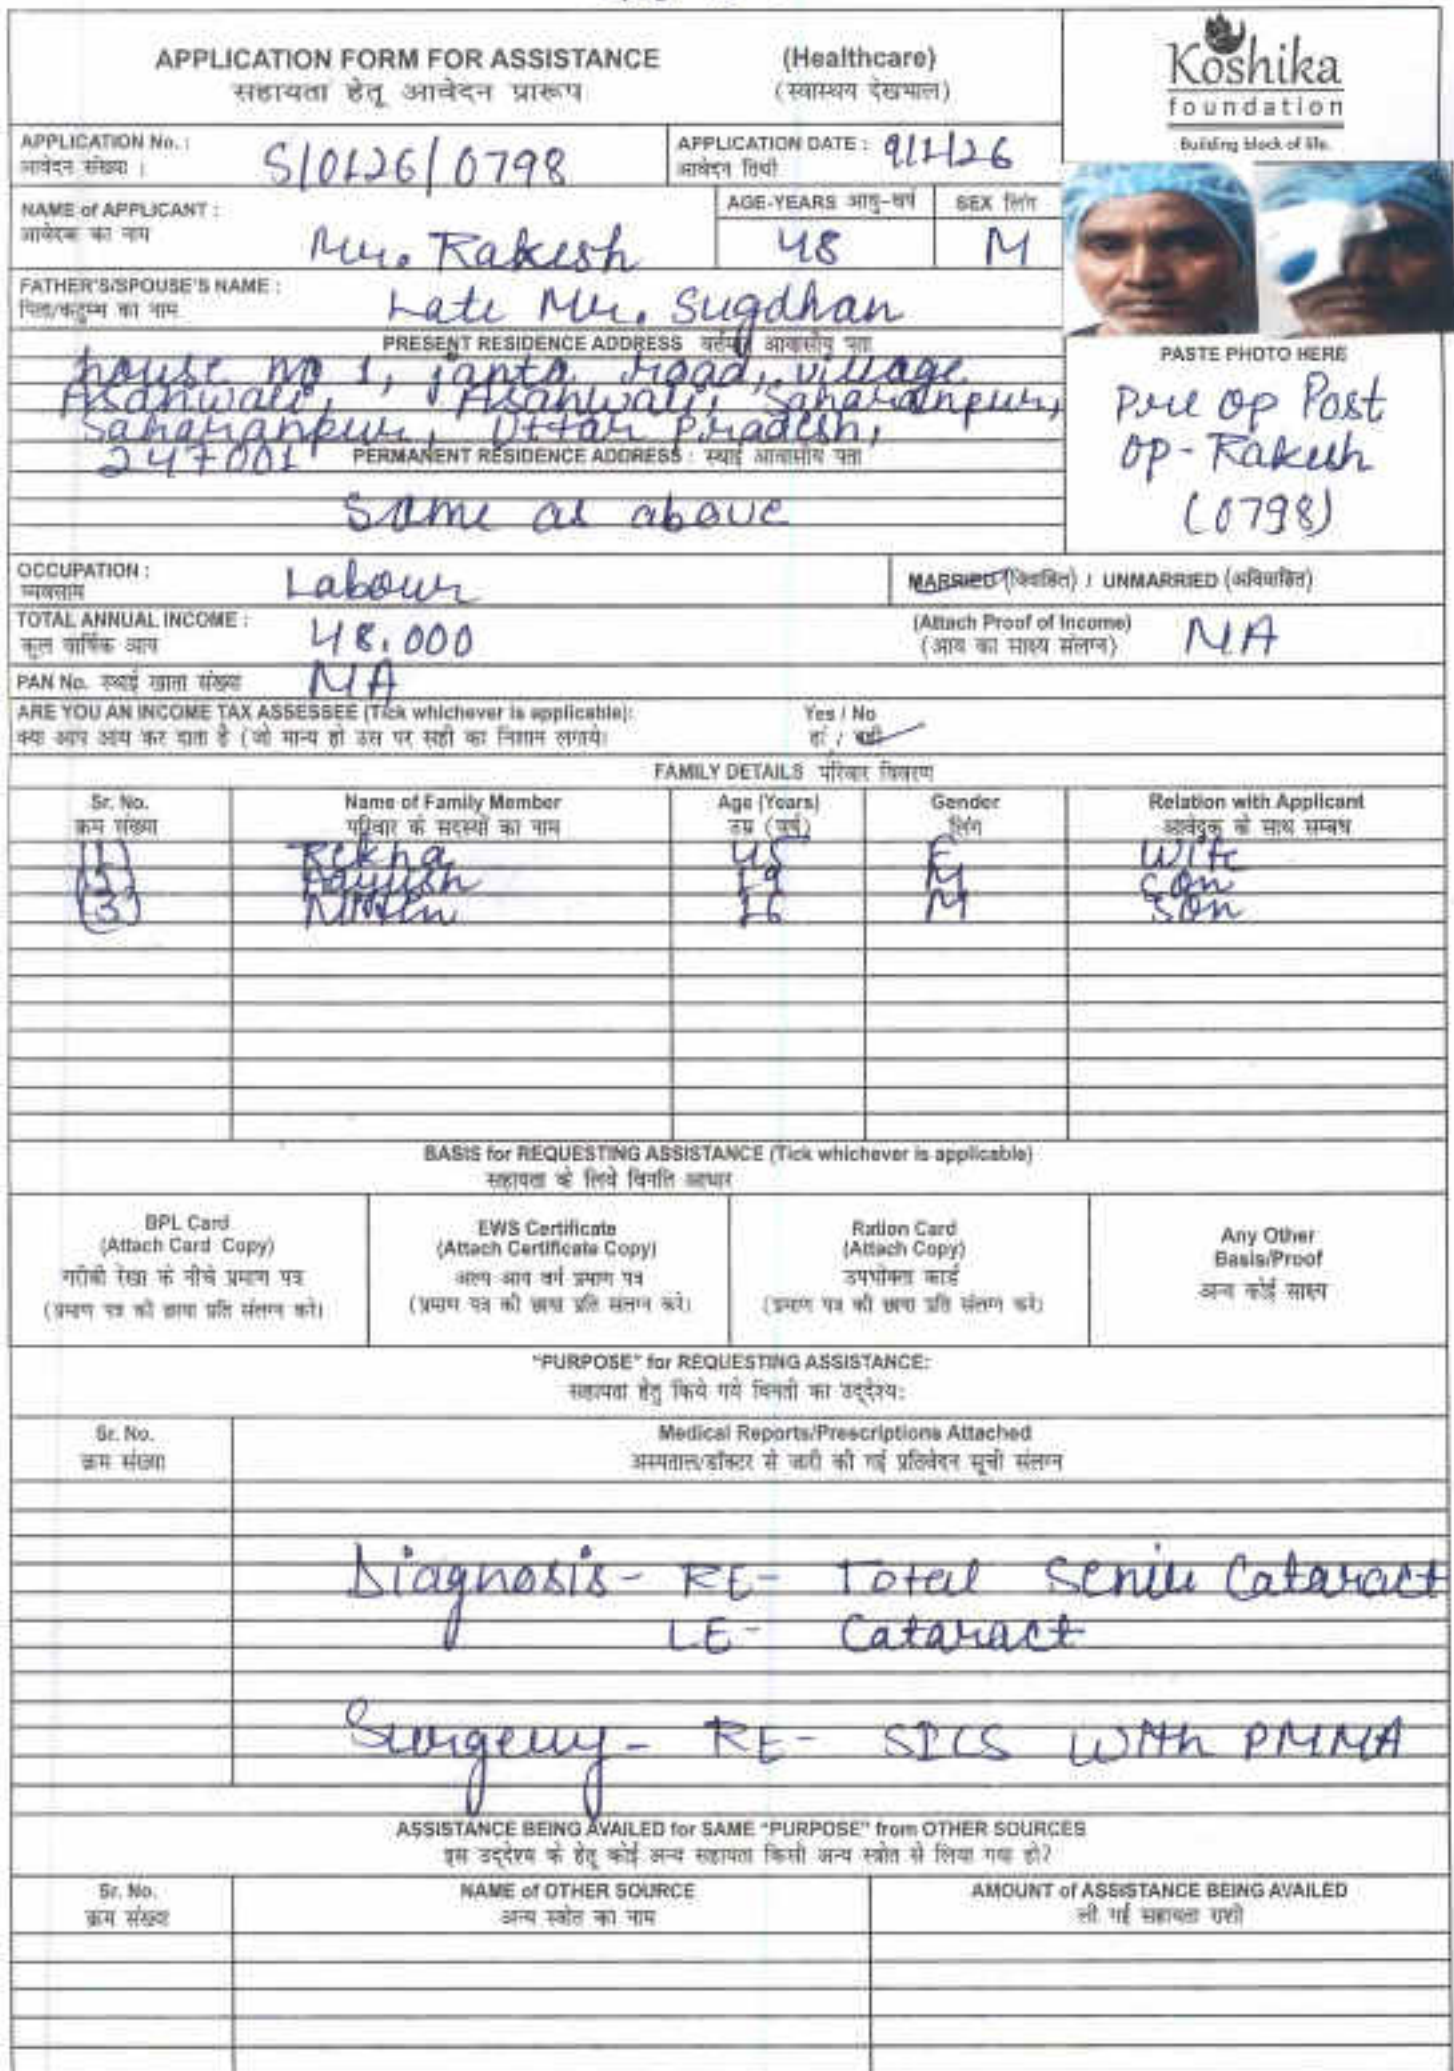 APPLICATION FORM FOR ASSISTANCE (Healthcare)
सहायता हेतू आवेदन प्रारूप (स्वास्थय देखभाल)
Koshika
foundation
Building block of life.
APPLICATION No. : S/0126/0798 APPLICATION DATE : 9/1/26
आवेदन संख्या : आवेदन तिथी
NAME of APPLICANT : Mr. Rakesh AGE-YEARS आयु-वर्ष 48 SEX लिंग M
आवेदक का नाम
FATHER'S/SPOUSE'S NAME : Late Mr. Sugdhan
पिता/कटुम्ब का नाम
PRESENT RESIDENCE ADDRESS वर्तमान आवासीय पता
house no 1, janta road, village
Asanwali, Asanwali, Saharanpur,
Saharanpur, Uttar Pradesh,
247001
PERMANENT RESIDENCE ADDRESS : स्थाई आवासीय पता
Same as above
PASTE PHOTO HERE
Pre op Post
op - Rakesh
(0798)
OCCUPATION : Labour MARRIED (विवाहित) / UNMARRIED (अविवाहित)
व्यवसाय
TOTAL ANNUAL INCOME : 48,000 (Attach Proof of Income) NA
कुल वार्षिक आय (आय का साक्ष्य संलग्न)
PAN No. स्थाई खाता संख्या NA
ARE YOU AN INCOME TAX ASSESSEE (Tick whichever is applicable): Yes / No
क्या आप आय कर दाता है (जो मान्य हो उस पर सही का निशान लगाये। हां / नहीं
FAMILY DETAILS परिवार विवरण
Sr. No. Name of Family Member Age (Years) Gender Relation with Applicant
क्रम संख्या परिवार के सदस्यों का नाम उम्र (वर्ष) लिंग आवेदक के साथ सम्बंध
(1) Rekha 45 F Wife
(2) Aayush 19 M Son
(3) Nitin 16 M Son
BASIS for REQUESTING ASSISTANCE (Tick whichever is applicable)
सहायता के लिये विनति आधार
BPL Card
(Attach Card Copy)
गरीबी रेखा के नीचे प्रमाण पत्र
(प्रमाण पत्र की छाया प्रति संलग्न करे)
EWS Certificate
(Attach Certificate Copy)
अल्प आय वर्ग प्रमाण पत्र
(प्रमाण पत्र की छाया प्रति संलग्न करे)
Ration Card
(Attach Copy)
उपभोक्ता कार्ड
(प्रमाण पत्र की छाया प्रति संलग्न करे)
Any Other
Basis/Proof
अन्य कोई साक्ष्य
"PURPOSE" for REQUESTING ASSISTANCE:
सहायता हेतु किये गये विनती का उद्देश्य:
Sr. No. Medical Reports/Prescriptions Attached
क्रम संख्या अस्पताल/डॉक्टर से जारी की गई प्रतिवेदन सूची संलग्न
Diagnosis - RE - Total Senile Cataract
LE - Cataract
Surgery - RE - SICS With PMMA
ASSISTANCE BEING AVAILED for SAME "PURPOSE" from OTHER SOURCES
इस उद्देश्य के हेतू कोई अन्य सहायता किसी अन्य स्त्रोत से लिया गया हो?
Sr. No. NAME of OTHER SOURCE AMOUNT of ASSISTANCE BEING AVAILED
क्रम संख्या अन्य स्त्रोत का नाम ली गई सहायता राशी